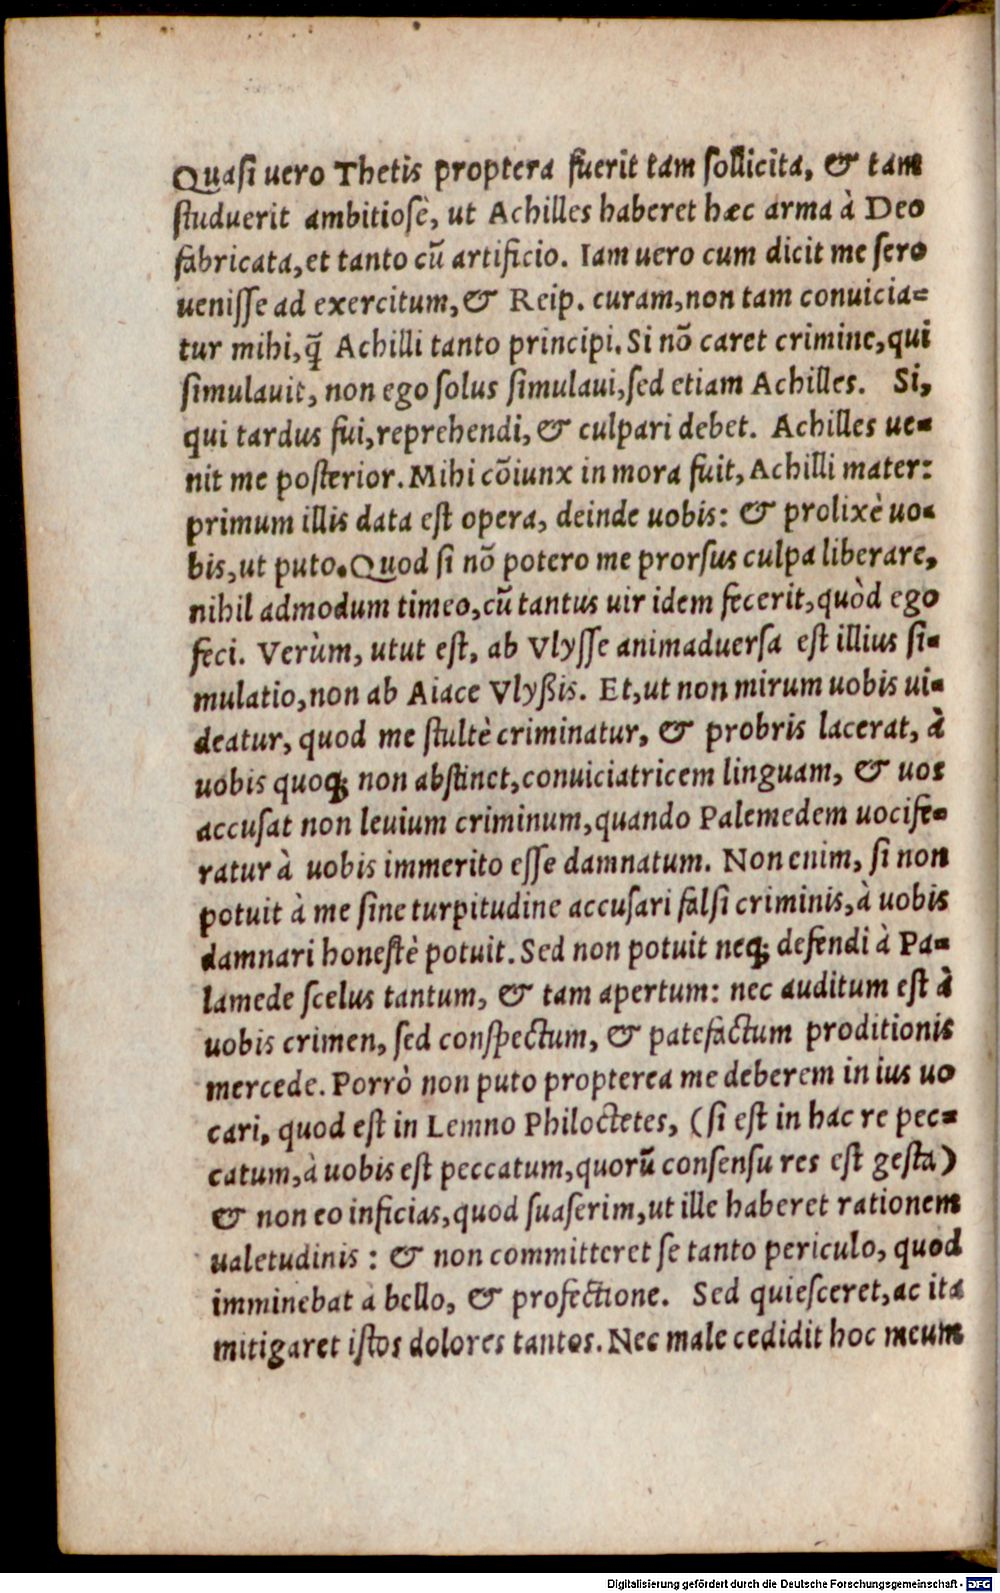 Quaſi uero Thetis proptera fuerit tam ſollicita, & tam
ſtuduerit ambitioſè, ut Achilles haberet hæc arma à Deo
fabricata, et tanto cũ artificio. Iam uero cum dicit me ſero
ueniſſe ad exercitum, & Reip. curam, non tam conuicia=
tur mihi, q̃ Achilli tanto principi. Si nõ caret crimine, qui
ſimulauit, non ego ſolus ſimulaui, ſed etiam Achilles. Si,
qui tardus fui, reprehendi, & culpari debet. Achilles ue=
nit me poſterior. Mihi cõiunx in mora fuit, Achilli mater:
primum illis data eſt opera, deinde uobis: & prolixè uo=
bis, ut puto. Quod ſi nõ potero me prorſus culpa liberare,
nihil admodum timeo, cũ tantus uir idem fecerit, quòd ego
feci. Verùm, utut eſt, ab Vlyſſe animaduerſa eſt illius ſi=
mulatio, non ab Aiace Vlyßis. Et, ut non mirum uobis ui=
deatur, quod me ſtultè criminatur, & probris lacerat, à
uobis quoq; non abſtinet, conuiciatricem linguam, & uos
accuſat non leuium criminum, quando Palemedem uocife=
ratur à uobis immerito eſſe damnatum. Non enim, ſi non
potuit à me ſine turpitudine accuſari falſi criminis, à uobis
damnari honeſtè potuit. Sed non potuit neq; defendi à Pa=
lamede ſcelus tantum, & tam apertum: nec auditum eſt à
uobis crimen, ſed conſpectum, & patefactum proditionis
mercede. Porrò non puto propterea me deberem in ius uo
cari, quod eſt in Lemno Philoctetes, (ſi eſt in hac re pec=
catum, à uobis eſt peccatum, quorũ conſenſu res eſt geſta)
& non eo inficias, quod ſuaſerim, ut ille haberet rationem
ualetudinis : & non committeret ſe tanto periculo, quod
imminebat à bello, & profectione. Sed quieſceret, ac ita
mitigaret iſtos dolores tantos. Nec male cedidit hoc meum
Digitalisierung gefördert durch die Deutsche Forschungsgemeinschaft - DFG